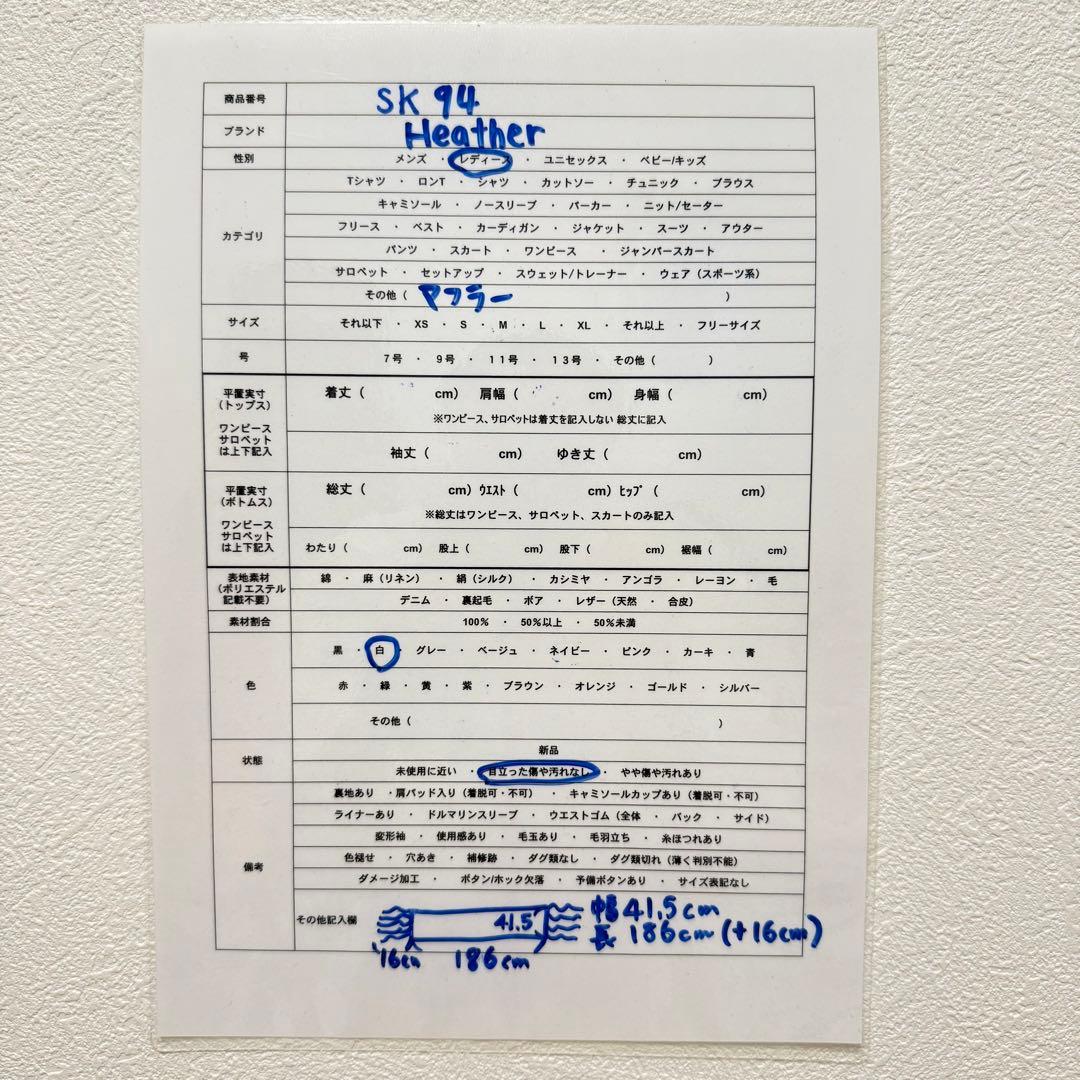 商品番号 SK 94
ブランド Heather
性別 メンズ ・ レディース ・ ユニセックス ・ ベビー/キッズ
Tシャツ ・ ロンT ・ シャツ ・ カットソー ・ チュニック ・ ブラウス
キャミソール ・ ノースリーブ ・ パーカー ・ ニット/セーター
カテゴリ フリース ・ ベスト ・ カーディガン ・ ジャケット ・ スーツ ・ アウター
パンツ ・ スカート ・ ワンピース ・ ジャンパースカート
サロペット ・ セットアップ ・ スウェット/トレーナー ・ ウェア（スポーツ系）
その他（ マフラー ）
サイズ それ以下 ・ XS ・ S ・ M ・ L ・ XL ・ それ以上 ・ フリーサイズ
号 7号 ・ 9号 ・ 11号 ・ 13号 ・ その他（ ）
平置実寸
（トップス）
ワンピース
サロペット
は上下記入
着丈（ cm） 肩幅（ cm） 身幅（ cm）
※ワンピース、サロペットは着丈を記入しない 総丈に記入
袖丈（ cm） ゆき丈（ cm）
平置実寸
（ボトムス）
ワンピース
サロペット
は上下記入
総丈（ cm）ｳｴｽﾄ（ cm）ﾋｯﾌﾟ（ cm）
※総丈はワンピース、サロペット、スカートのみ記入
わたり（ cm） 股上（ cm） 股下（ cm） 裾幅（ cm）
表地素材
（ポリエステル
記載不要）
綿 ・ 麻（リネン） ・ 絹（シルク） ・ カシミヤ ・ アンゴラ ・ レーヨン ・ 毛
デニム ・ 裏起毛 ・ ボア ・ レザー（天然 ・ 合皮）
素材割合 100% ・ 50%以上 ・ 50%未満
黒 ・ 白 ・ グレー ・ ベージュ ・ ネイビー ・ ピンク ・ カーキ ・ 青
色 赤 ・ 緑 ・ 黄 ・ 紫 ・ ブラウン ・ オレンジ ・ ゴールド ・ シルバー
その他（ ）
状態 新品
未使用に近い ・ 目立った傷や汚れなし ・ やや傷や汚れあり
裏地あり ・ 肩パッド入り（着脱可・不可） ・ キャミソールカップあり（着脱可・不可）
ライナーあり ・ ドルマリンスリーブ ・ ウエストゴム（全体 ・ バック ・ サイド）
変形袖 ・ 使用感あり ・ 毛玉あり ・ 毛羽立ち ・ 糸ほつれあり
備考 色褪せ ・ 穴あき ・ 補修跡 ・ タグ類なし ・ タグ類切れ（薄く判別不能）
ダメージ加工 ・ ボタン/ホック欠落 ・ 予備ボタンあり ・ サイズ表記なし
その他記入欄 41.5 幅41.5cm
長 186cm(+16cm)
16cm 186cm